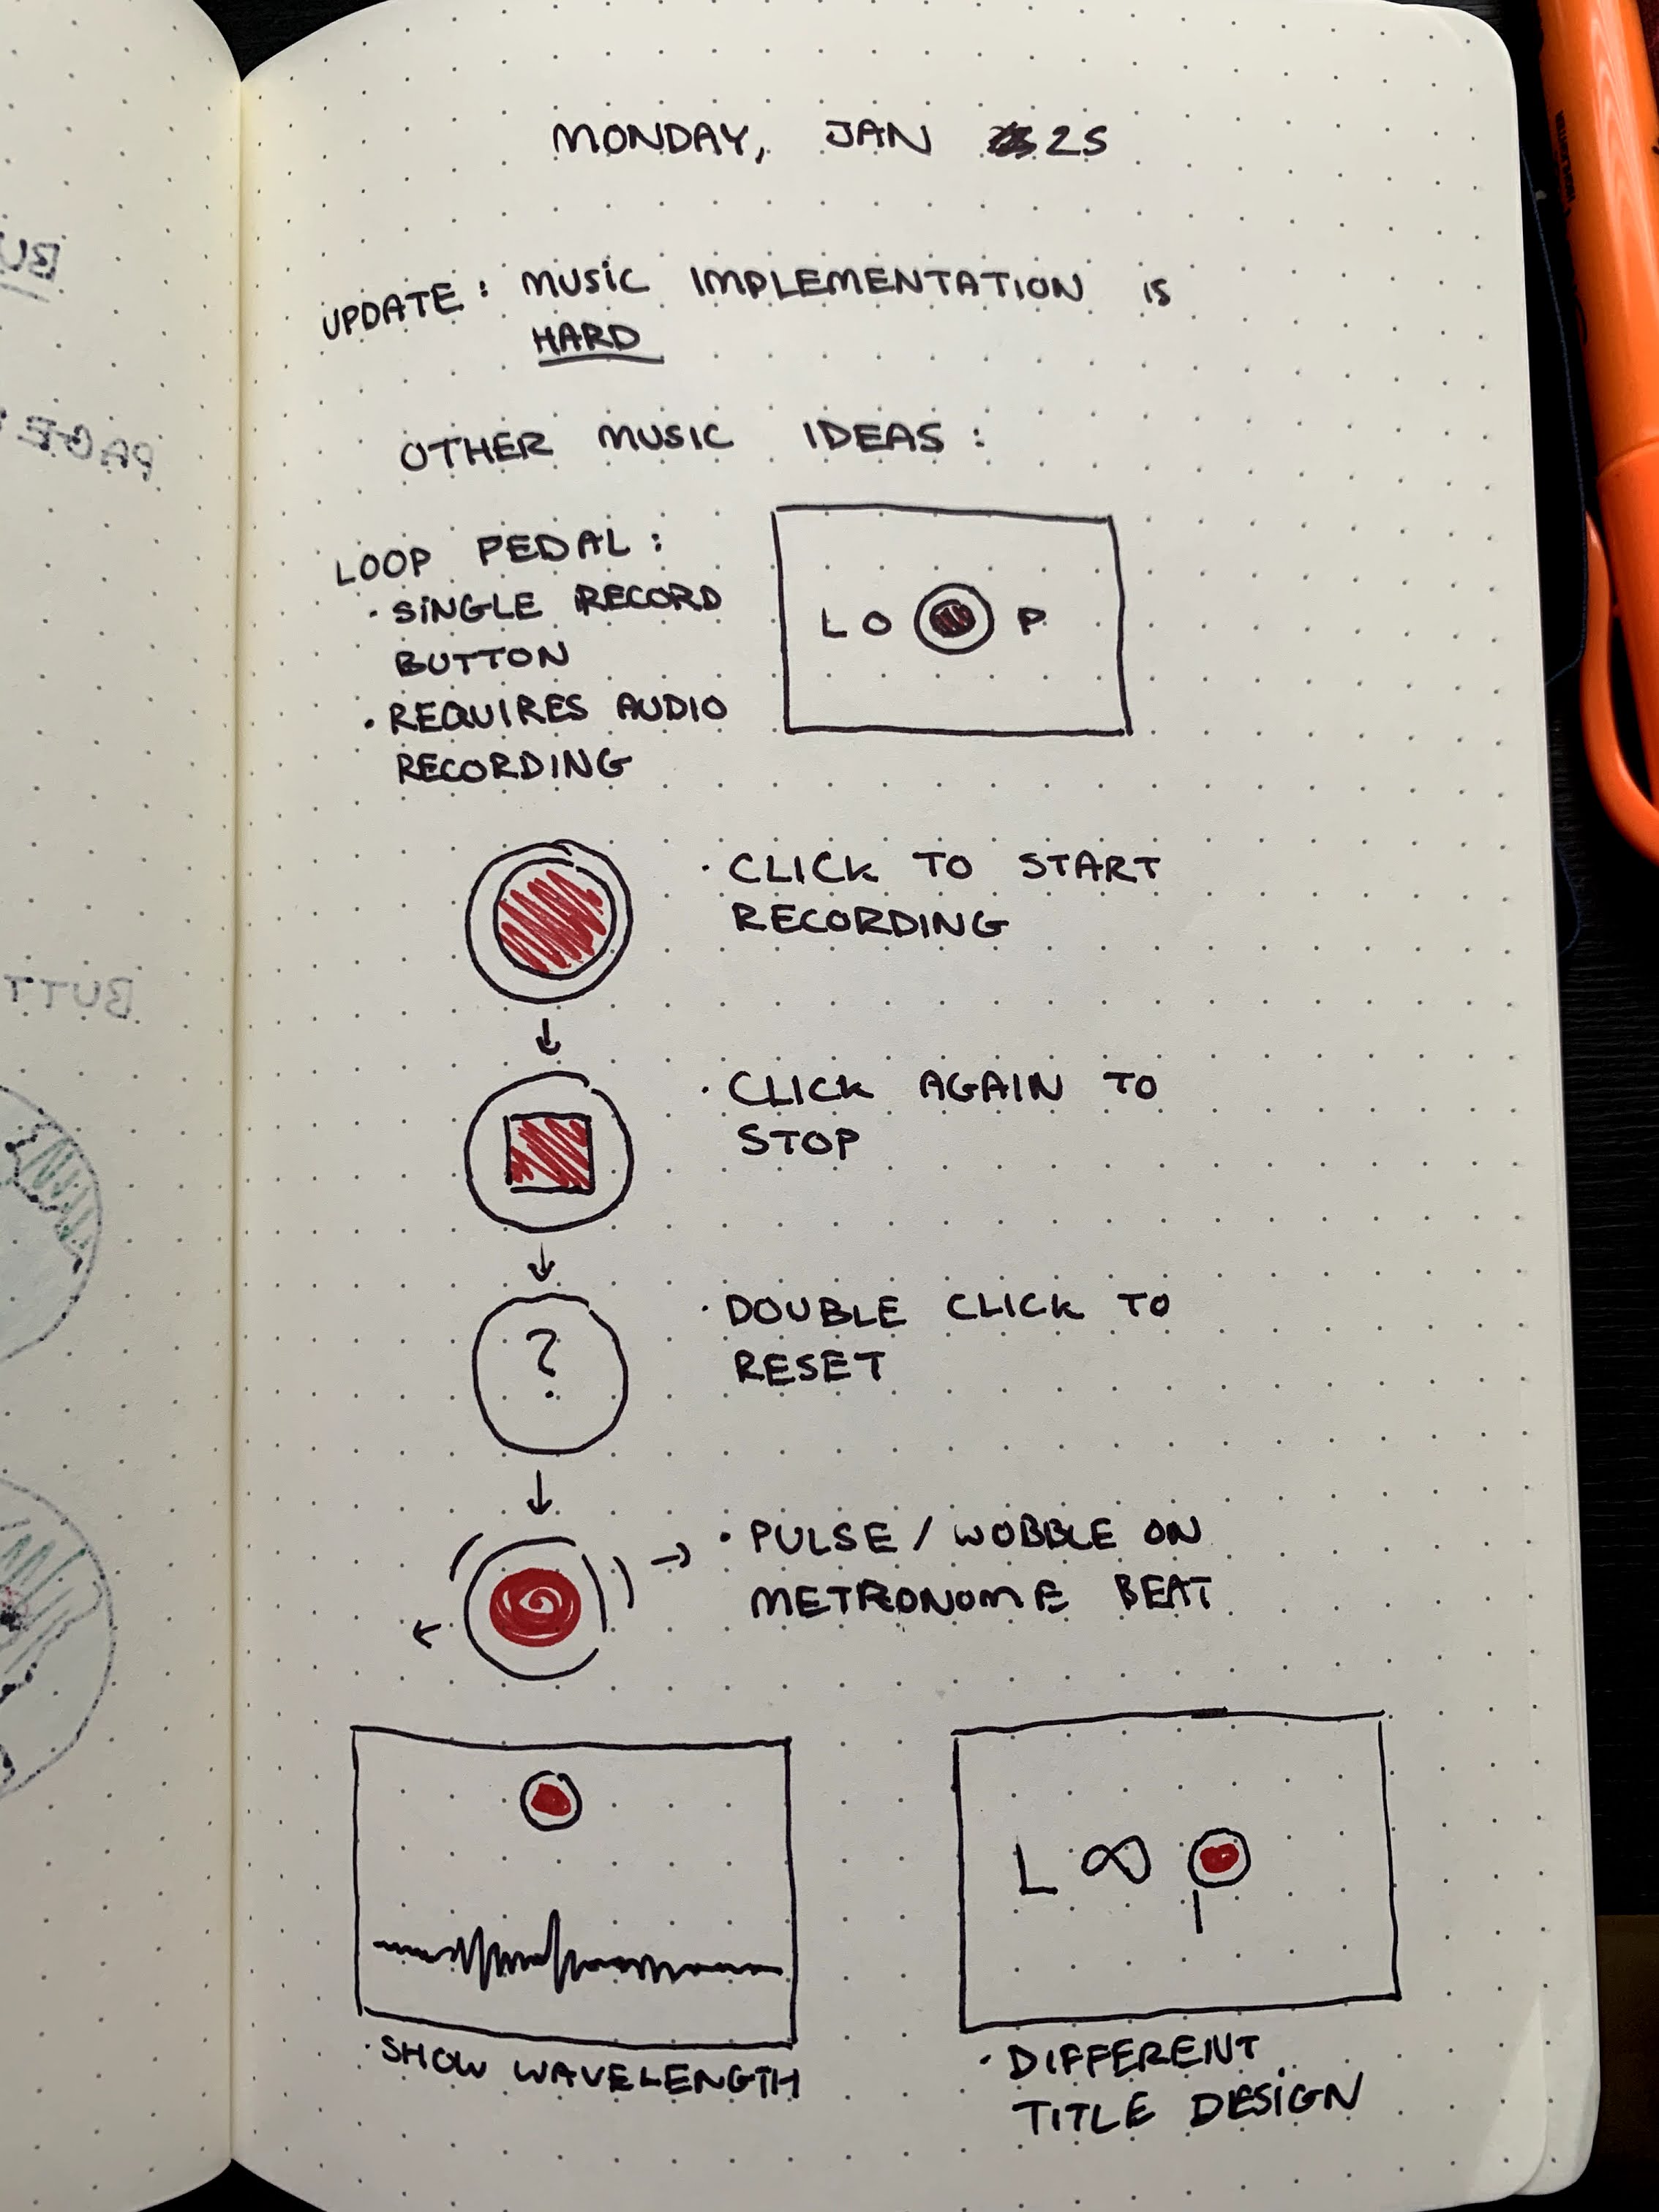 MONDAY, JAN 25
UPDATE: MUSIC IMPLEMENTATION IS
HARD
OTHER MUSIC IDEAS:
LOOP PEDAL:
· SINGLE RECORD
BUTTON
· REQUIRES AUDIO
RECORDING
L O P
· CLICK TO START
RECORDING
· CLICK AGAIN TO
STOP
?
· DOUBLE CLICK TO
RESET
· PULSE / WOBBLE ON
METRONOME BEAT
L ∞
· SHOW WAVELENGTH
· DIFFERENT
TITLE DESIGN
BU
PAGE
BUTT